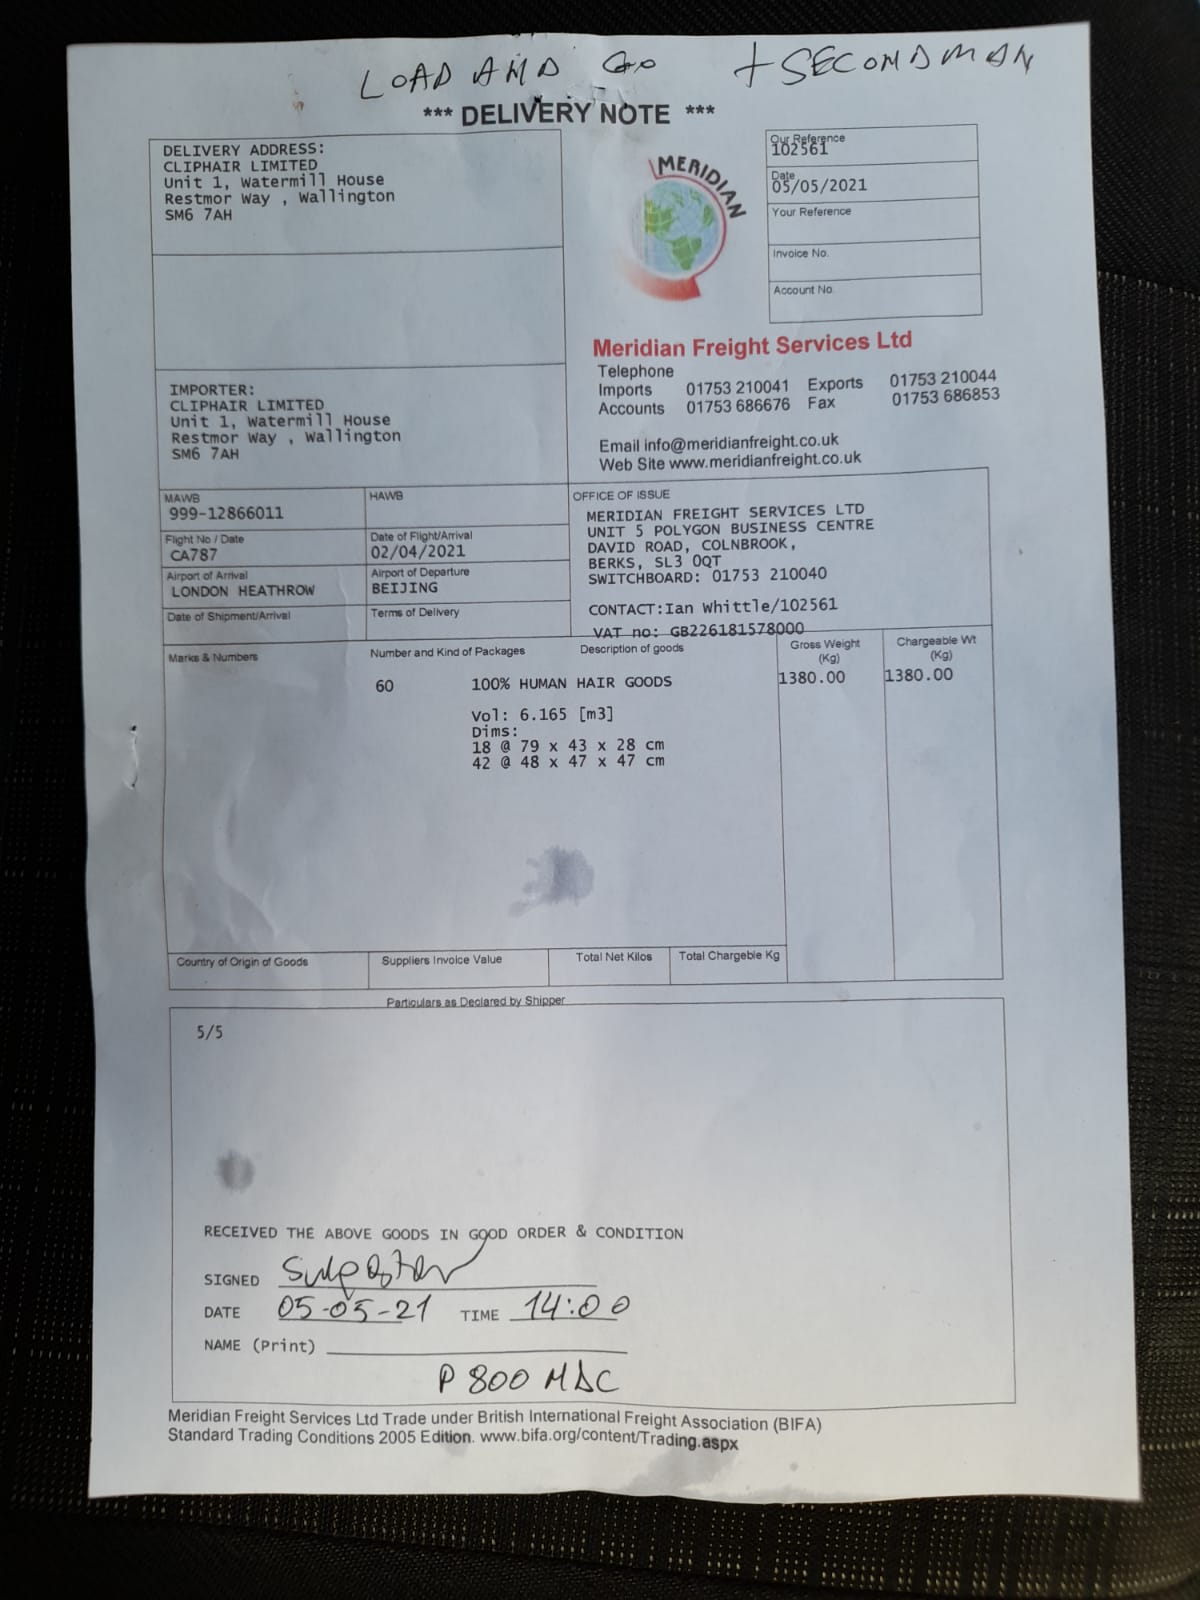 LOAD AND GO + SECOND MAN
*** DELIVERY NOTE ***
DELIVERY ADDRESS:
CLIPHAIR LIMITED
Unit 1, Watermill House
Restmor Way , Wallington
SM6 7AH
MERIDIAN
Our Reference
102561
Date
05/05/2021
Your Reference
Invoice No.
Account No.
Meridian Freight Services Ltd
Telephone
Imports 01753 210041 Exports 01753 210044
Accounts 01753 686676 Fax 01753 686853
Email info@meridianfreight.co.uk
Web Site www.meridianfreight.co.uk
IMPORTER:
CLIPHAIR LIMITED
Unit 1, Watermill House
Restmor Way , Wallington
SM6 7AH
MAWB
999-12866011
HAWB
Flight No / Date
CA787
Date of Flight/Arrival
02/04/2021
Airport of Arrival
LONDON HEATHROW
Airport of Departure
BEIJING
Date of Shipment/Arrival
Terms of Delivery
OFFICE OF ISSUE
MERIDIAN FREIGHT SERVICES LTD
UNIT 5 POLYGON BUSINESS CENTRE
DAVID ROAD, COLNBROOK,
BERKS, SL3 0QT
SWITCHBOARD: 01753 210040
CONTACT:Ian Whittle/102561
VAT no: GB226181578000
Marks & Numbers
Number and Kind of Packages
Description of goods
Gross Weight
(Kg)
Chargeable Wt
(Kg)
60 100% HUMAN HAIR GOODS 1380.00 1380.00
Vol: 6.165 [m3]
Dims:
18 @ 79 x 43 x 28 cm
42 @ 48 x 47 x 47 cm
Country of Origin of Goods
Suppliers Invoice Value
Total Net Kilos
Total Chargeble Kg
Particulars as Declared by Shipper
5/5
RECEIVED THE ABOVE GOODS IN GOOD ORDER & CONDITION
SIGNED
DATE 05-05-21 TIME 14:00
NAME (Print)
P 800 MDC
Meridian Freight Services Ltd Trade under British International Freight Association (BIFA)
Standard Trading Conditions 2005 Edition. www.bifa.org/content/Trading.aspx